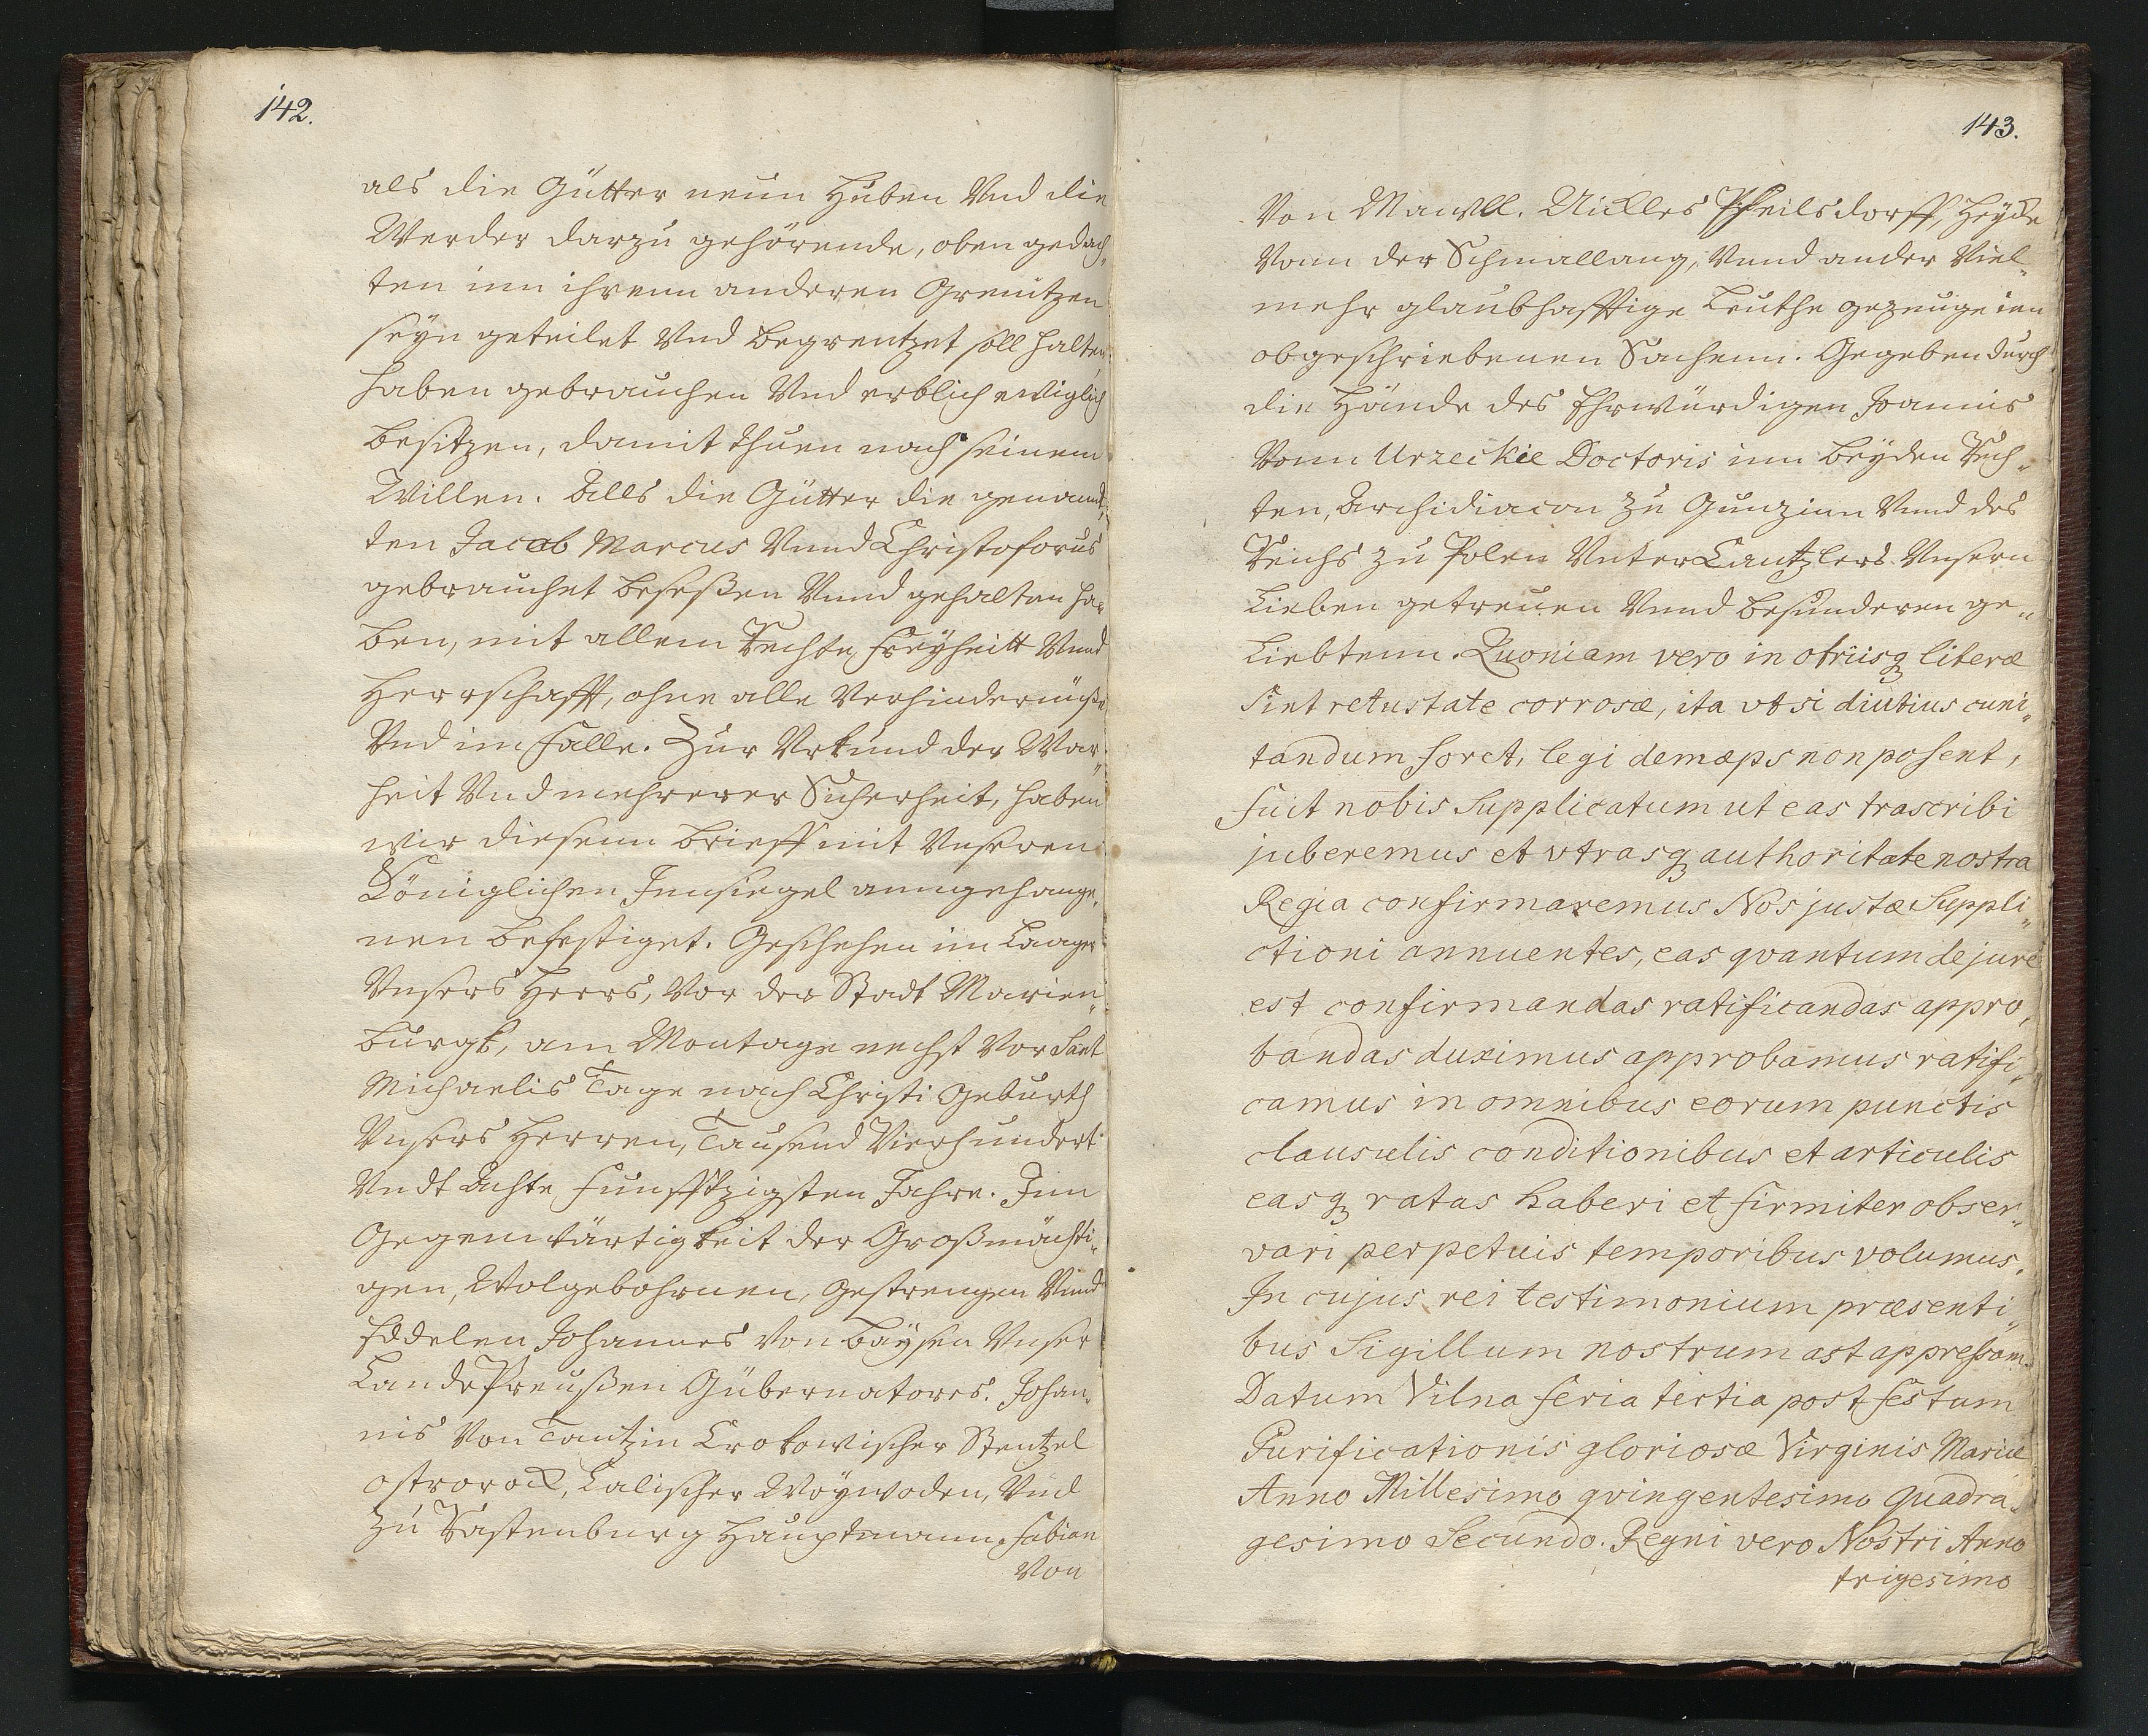 142.
als die Gütter neun Huben Vnd die
Werder darzu gehörende, oben gedach„
ten inn ihrenn anderen Grenitzen
seyn geteilet Vnd begrentzet soll halten
haben gebrauchen Vnd erblich ewiglich
besitzen, damit thuen nach seinem
Willen. Alls die Gütter die genand„
ten Jacob Marcus Vnnd Christoforus
gebrauchet beseßen Vnnd gehalten ha„
ben, mit allem Rechte freyheitt Vnnd
Herrschafft, ohne alle Verhindernüße
Vnd im falle. Zur Vrkund der War„
heit Vnd mehrerer Sicherheit, haben
wir diesenn brieff mit Vnseren
Königlichen Innsiegel anngehange„
nen befestiget. Geschehen im Laager
Vnsers Heers, Vor der Stadt Marien„
burgk, am Montage nechst Vor Sant
Michaelis Tage nach Christi Geburth
Vnsers Herren, Tausend Vierhundert
Vndt Achte funfftzigsten Jahre. Inn
Gegenwärtigkeit der Großmächti„
gen, Wolgebohrnen, Gestrengen Vnnd
Eddelen Johannes Von Baysen Vnser
Lande Preußen Gubernatores. Johan„
nis Von Tantzin Crokowischer Stentzel
Ostrorock, Calischer Woywoden, Vnd
zu Rastenburg Hauptmann. Fabian
Von
143.
Von Mawll. Nickles Pfeilsdorff, Heyde
Vonn der Schmallang, Vnnd ander Viel„
mehr glaubhafftige Leuthe gezeuge inn
obgeschriebenen Sachenn. Gegeben durch
die Hände des Ehrwürdigen Joannis
Vonn Urzeckie Doctoris inn beyden Rech„
ten, Archidiacon zu Gunzinn Vnnd des
Reichs zu Polen Vnter Cantzlers Vnsern
Lieben getreuen Vnnd besunderen ge„
Liebtenn. Quoniam vero in otriisq literæ
sint retustate corrosæ, ita vt si diutius cuni„
tandum foret, legi demæps non posent,
fuit nobis Supplicatum ut eas trascribi
juberemus et vtrasq authoritate nostra
Regia confirmaremus Nos justæ Suppli„
ctioni annuentes, eas qvantum de jure
est confirmandas ratificandas appro„
bandas duximus approbamus ratifi„
camus in omnibus eorum punctis
clausulis conditionibus et articulis
easq ratas haberi et firmiter obser„
vari perpetuis temporibus volumus.
In cujus rei testimonium præsenti„
bus Sigillum nostrum ast appressam.
Datum Vilna feria tertia post festum
Purificationis gloriosæ Virginis Mariæ
Anno Millesimo qvingentesimo quadra„
gesimo Secundo. Regni vero Nostri Anno
trigesimo